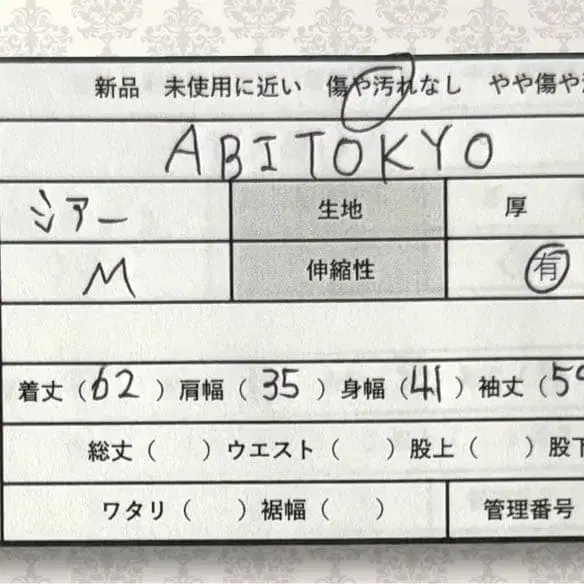 新品 未使用に近い 傷や汚れなし やや傷や
ABITOKYO
シアー 生地 厚
M 伸縮性 有
着丈（62）肩幅（35）身幅（41）袖丈（59
総丈（ ）ウエスト（ ）股上（ ）股下
ワタリ（ ）裾幅（ ） 管理番号